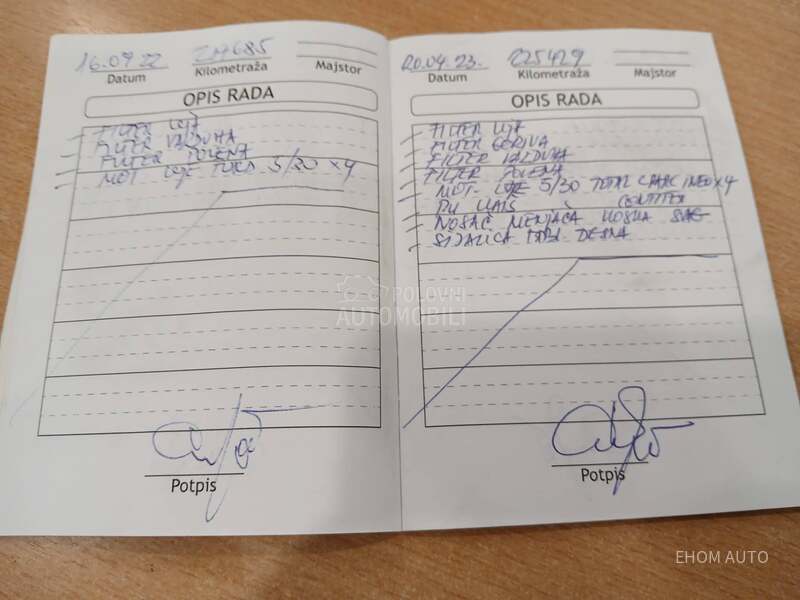 16.09 22
Datum
Kilometraža
Majstor
OPIS RADA
FILTER ULJA
FILTER VAZDUHA
FILTER POLENA
MOT ULJE 5/30 x4
Potpis
20.04.23.
Datum
225429
Kilometraža
Majstor
OPIS RADA
FILTER ULJA
FILTER GORIVA
FILTER VAZDUHA
FILTER POLENA
MOT. ULJE 5/30 TOTAL INEO x4
NOSAČ MENJAČA
SIJALICA DESNA
Potpis
POLOVNI
AUTOMOBILI
EHOM AUTO